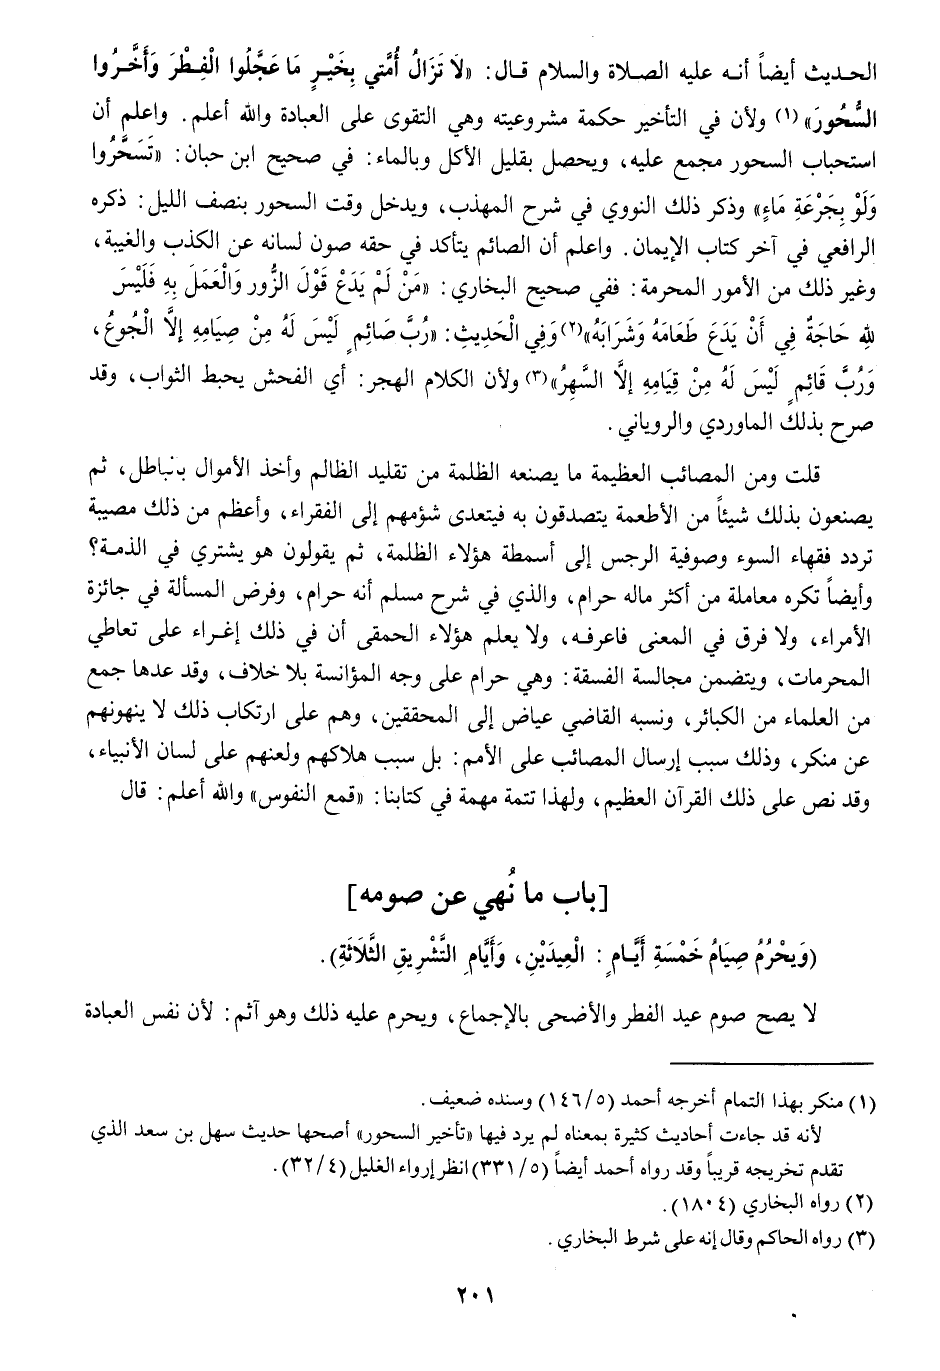 الحديث أيضاً أنه عليه الصلاة والسلام قال: «لَا تَزَالُ أُمَّتي بِخَيْرٍ مَا عَجَّلُوا الْفِطْرَ وَأَخَّرُوا
السُّحُورَ»(١) ولأن في التأخير حكمة مشروعيته وهي التقوى على العبادة والله أعلم. واعلم أن
استحباب السحور مجمع عليه، ويحصل بقليل الأكل وبالماء: في صحيح ابن حبان: «تَسَحَّرُوا
وَلَوْ بِجَرْعَةِ مَاءٍ» وذكر ذلك النووي في شرح المهذب، ويدخل وقت السحور بنصف الليل: ذكره
الرافعي في آخر كتاب الإيمان. واعلم أن الصائم يتأكد في حقه صون لسانه عن الكذب والغيبة،
وغير ذلك من الأمور المحرمة: ففي صحيح البخاري: «مَنْ لَمْ يَدَعْ قَوْلَ الزُّور وَالْعَمَلَ بِهِ فَلَيْسَ
لِلهِ حَاجَةٌ فِي أَنْ يَدَعَ طَعَامَهُ وَشَرَابَهُ»(٢) وَفِي الْحَدِيثِ: «رُبَّ صَائِمٍ لَيْسَ لَهُ مِنْ صِيَامِهِ إلَّا الْجُوعُ،
وَرُبَّ قَائِمٍ لَيْسَ لَهُ مِنْ قِيَامِهِ إلَّا السَّهَرُ»(٣) ولأن الكلام الهجر: أي الفحش يحبط الثواب، وقد
صرح بذلك الماوردي والروياني.
قلت ومن المصائب العظيمة ما يصنعه الظلمة من تقليد الظالم وأخذ الأموال بالباطل، ثم
يصنعون بذلك شيئاً من الأطعمة يتصدقون به فيتعدى شؤمهم إلى الفقراء، وأعظم من ذلك مصيبة
تردد فقهاء السوء وصوفية الرجس إلى أسمطة هؤلاء الظلمة، ثم يقولون هو يشتري في الذمة؟
وأيضاً تكره معاملة من أكثر ماله حرام، والذي في شرح مسلم أنه حرام، وفرض المسألة في جائزة
الأمراء، ولا فرق في المعنى فاعرفه، ولا يعلم هؤلاء الحمقى أن في ذلك إغراء على تعاطي
المحرمات، ويتضمن مجالسة الفسقة: وهي حرام على وجه المؤانسة بلا خلاف، وقد عدها جمع
من العلماء من الكبائر، ونسبه القاضي عياض إلى المحققين، وهم على ارتكاب ذلك لا ينهونهم
عن منكر، وذلك سبب إرسال المصائب على الأمم: بل سبب هلاكهم ولعنهم على لسان الأنبياء،
وقد نص على ذلك القرآن العظيم، ولهذا تتمة مهمة في كتابنا: «قمع النفوس» والله أعلم: قال
[باب ما نُهي عن صومه]
(وَيَحْرُمُ صِيَامُ خَمْسَةِ أَيَّامٍ: الْعِيدَيْنِ، وَأَيَّامِ التَّشْرِيقِ الثَّلَاثَةِ).
لا يصح صوم عيد الفطر والأضحى بالإجماع، ويحرم عليه ذلك وهو آثم: لأن نفس العبادة
(١) منكر بهذا التمام أخرجه أحمد (١٤٦/٥) وسنده ضعيف.
لأنه قد جاءت أحاديث كثيرة بمعناه لم يرد فيها «تأخير السحور» أصحها حديث سهل بن سعد الذي
تقدم تخريجه قريباً وقد رواه أحمد أيضاً (٣٣١/٥) انظر إرواء الغليل (٣٢/٤).
(٢) رواه البخاري (١٨٠٤).
(٣) رواه الحاكم وقال إنه على شرط البخاري.
٢٠١